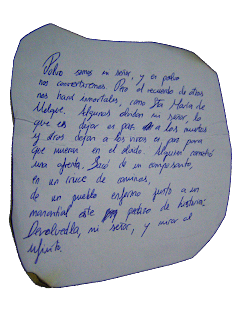 Polvo somos mi señor, y en polvo
nos convertiremos. Pero el recuerdo de otros
nos hará inmortales, como Sta María de
Melque. Algunos olvidan mi señor, lo
que es dejar en paz a los muertos
y otros dejan a los vivos en paz para
que mueran en el olvido. Alguien cometió
una afrenta. Sacó de un camposanto,
en un cruce de caminos,
de un pueblo enfermo junto a un
manantial este pedazo de historia.
Devolvedla, mi señor, y mirar al
infinito.